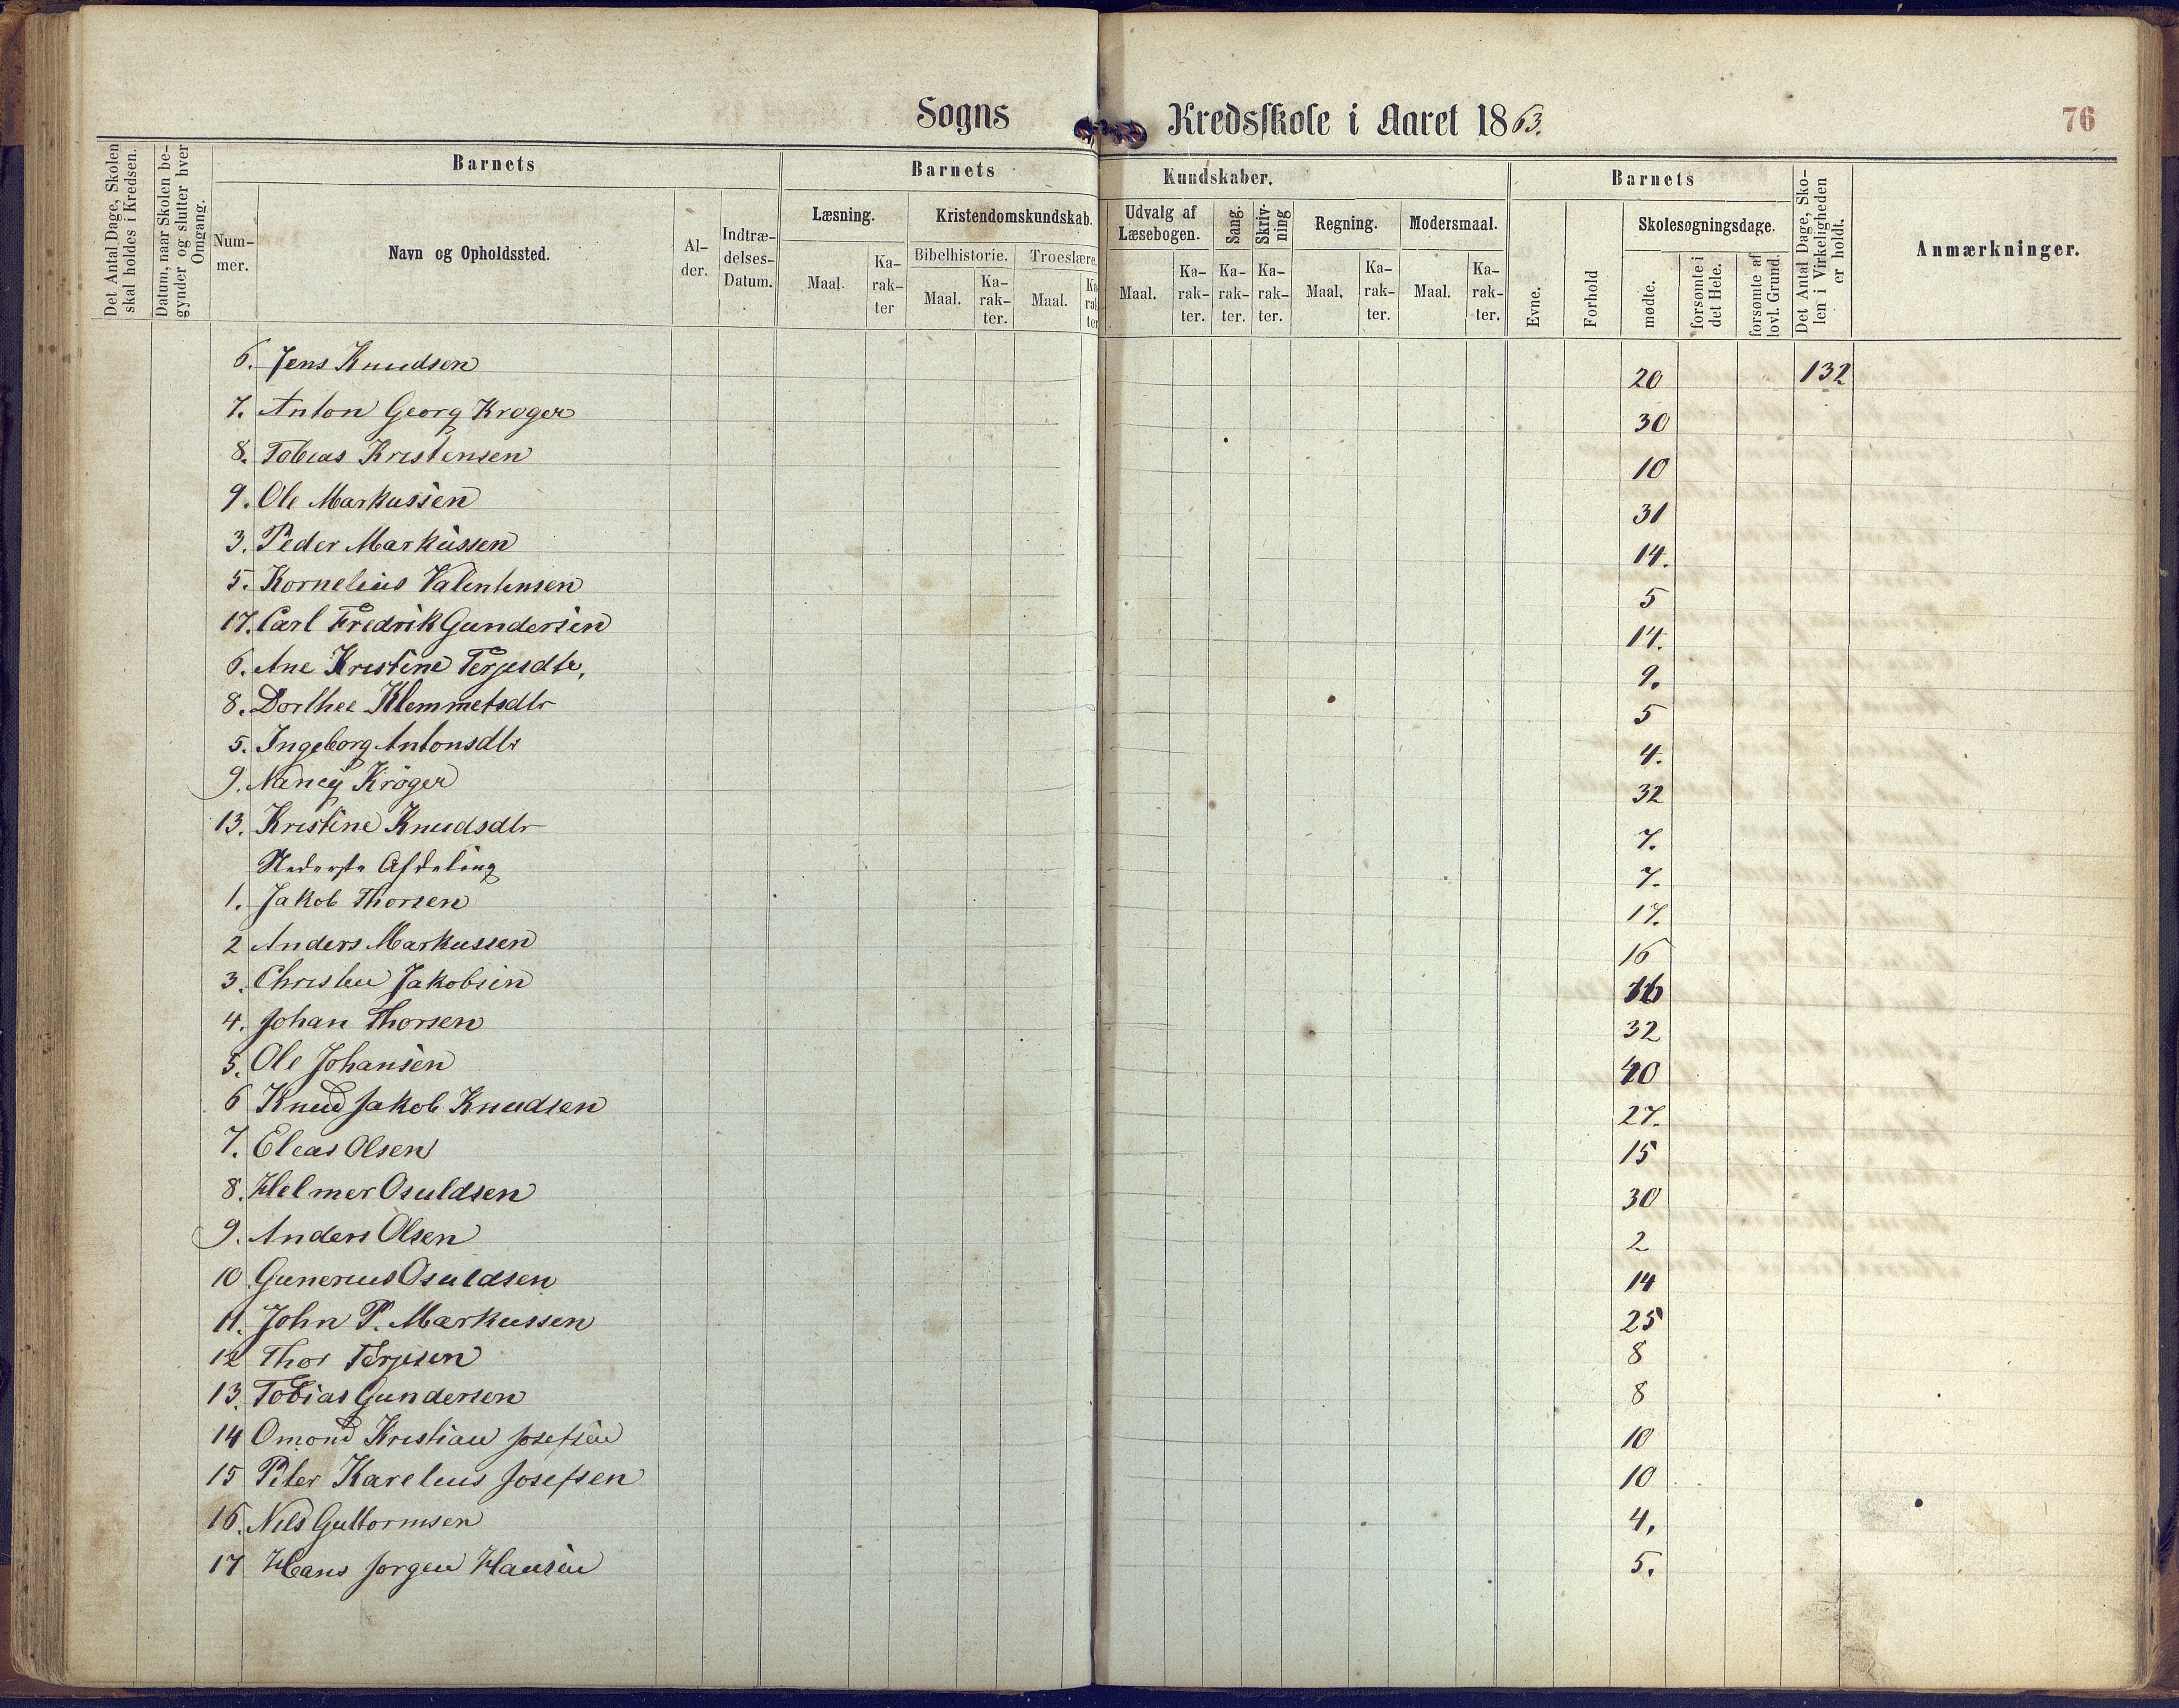 Sogns Kredsskole i Aaret 1863.
76
Det Antal Dage, Skolen skal holdes i Kredsen.
Datum, naar Skolen begynder og slutter hver Omgang.
Barnets
Num-
mer.
Navn og Opholdssted.
Al-
der.
Indtræ-
delses-
Datum.
Barnets Kundskaber.
Læsning.
Maal.
Ka-
rak-
ter
Kristendomskundskab.
Bibelhistorie.
Maal.
Ka-
rak-
ter.
Troeslære.
Maal.
Ka-
rak-
ter
Udvalg af
Læsebogen.
Maal.
Ka-
rak-
ter.
Sang.
Ka-
rak-
ter.
Skriv-
ning
Ka-
rak-
ter.
Regning.
Maal.
Ka-
rak-
ter.
Modersmaal.
Maal.
Ka-
rak-
ter.
Barnets
Evne.
Forhold
Skolesøgningsdage.
mødte.
forsømte i det Hele.
forsømte af lovl. Grund.
Det Antal Dage, Sko-
len i Virkeligheden
er holdt.
Anmærkninger.
6. Jens Knudsen 20 132
7. Anton Georg Krøger 30
8. Tobias Kristensen 10
9. Ole Markussen 31
3. Peder Markussen 14.
5. Kornelius Valentinsen 5
17. Carl Fredrik Gundersen 14.
6. Ane Kristine Terjesdtr. 9.
8. Dorthee Klemmetsdtr 5
5. Ingeborg Antonsdtr 4.
9. Nancy Krøger 32
13. Kristine Knudsdtr 7.
Nederste Afdeling 7.
1. Jakob Thorsen 17.
2 Anders Markussen 16
3. Christen Jakobsen 16
4. Johan Thorsen 32
5. Ole Johansen 40
6 Knud Jakob Knudsen 27.
7. Elias Olsen 15
8. Helmer Osuldsen 30
9. Anders Olsen 2
10 Gunerius Osuldsen 14
11. John P. Markussen 25
12 Thor Terjesen 8
13. Tobias Gundersen 8
14 Omond Kristian Josefsen 10
15 Peter Karelius Josefsen 10
16. Nils Guttormsen 4.
17 Hans Jørgen Hansen 5.